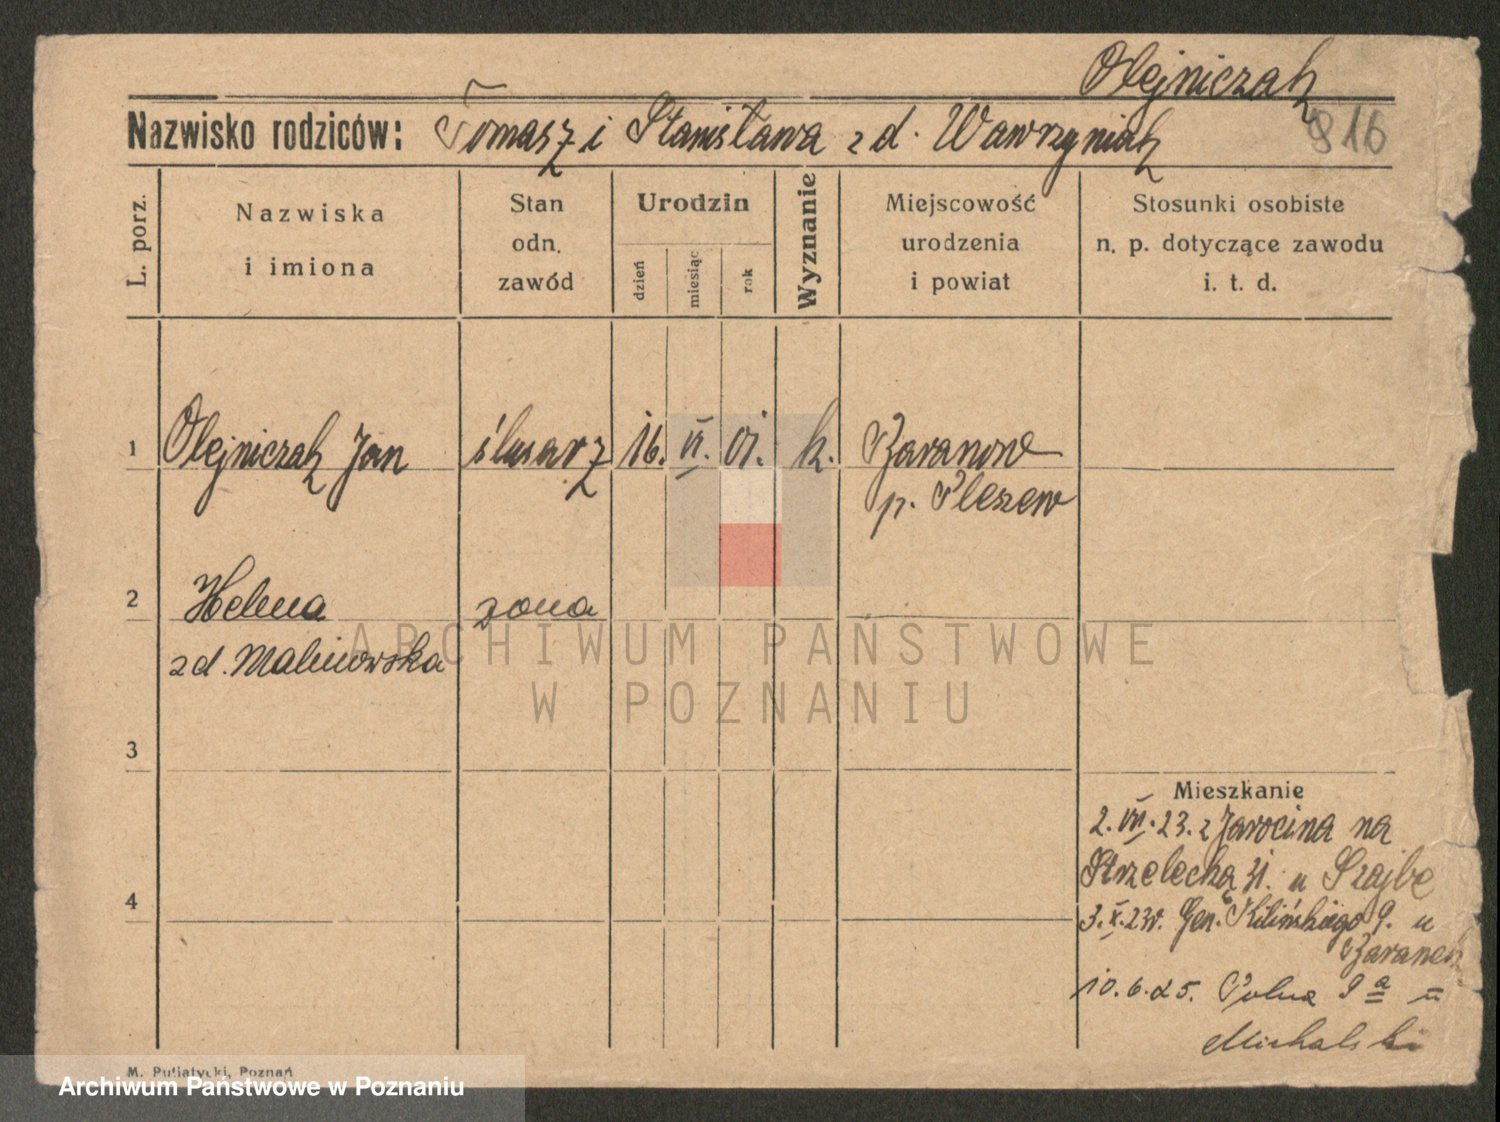 Olejniczak
Nazwisko rodziców: Tomasz i Stanisława z d. Wawrzyniak 916
L. porz.
Nazwiska
i imiona
Stan
odn.
zawód
Urodzin
dzień
miesiąc
rok
Wyznanie
Miejscowość
urodzenia
i powiat
Stosunki osobiste
n. p. dotyczące zawodu
i. t. d.
1 Olejniczak Jan ślusarz 16. VI. 01. k. Baranow
p. Pleszew
2 Helena żona
z d. Malinowska
3
4
Mieszkanie
2. VII. 23. z Jarocina na
Strzelecką 31. u Szajbe
3. X. 23r. Gen. Kilińskiego 9. u
Baranek
10. 6. 25. Polna 9 a u
Michalski
M. Putiatycki, Poznań
ARCHIWUM PAŃSTWOWE
W POZNANIU
Archiwum Państwowe w Poznaniu